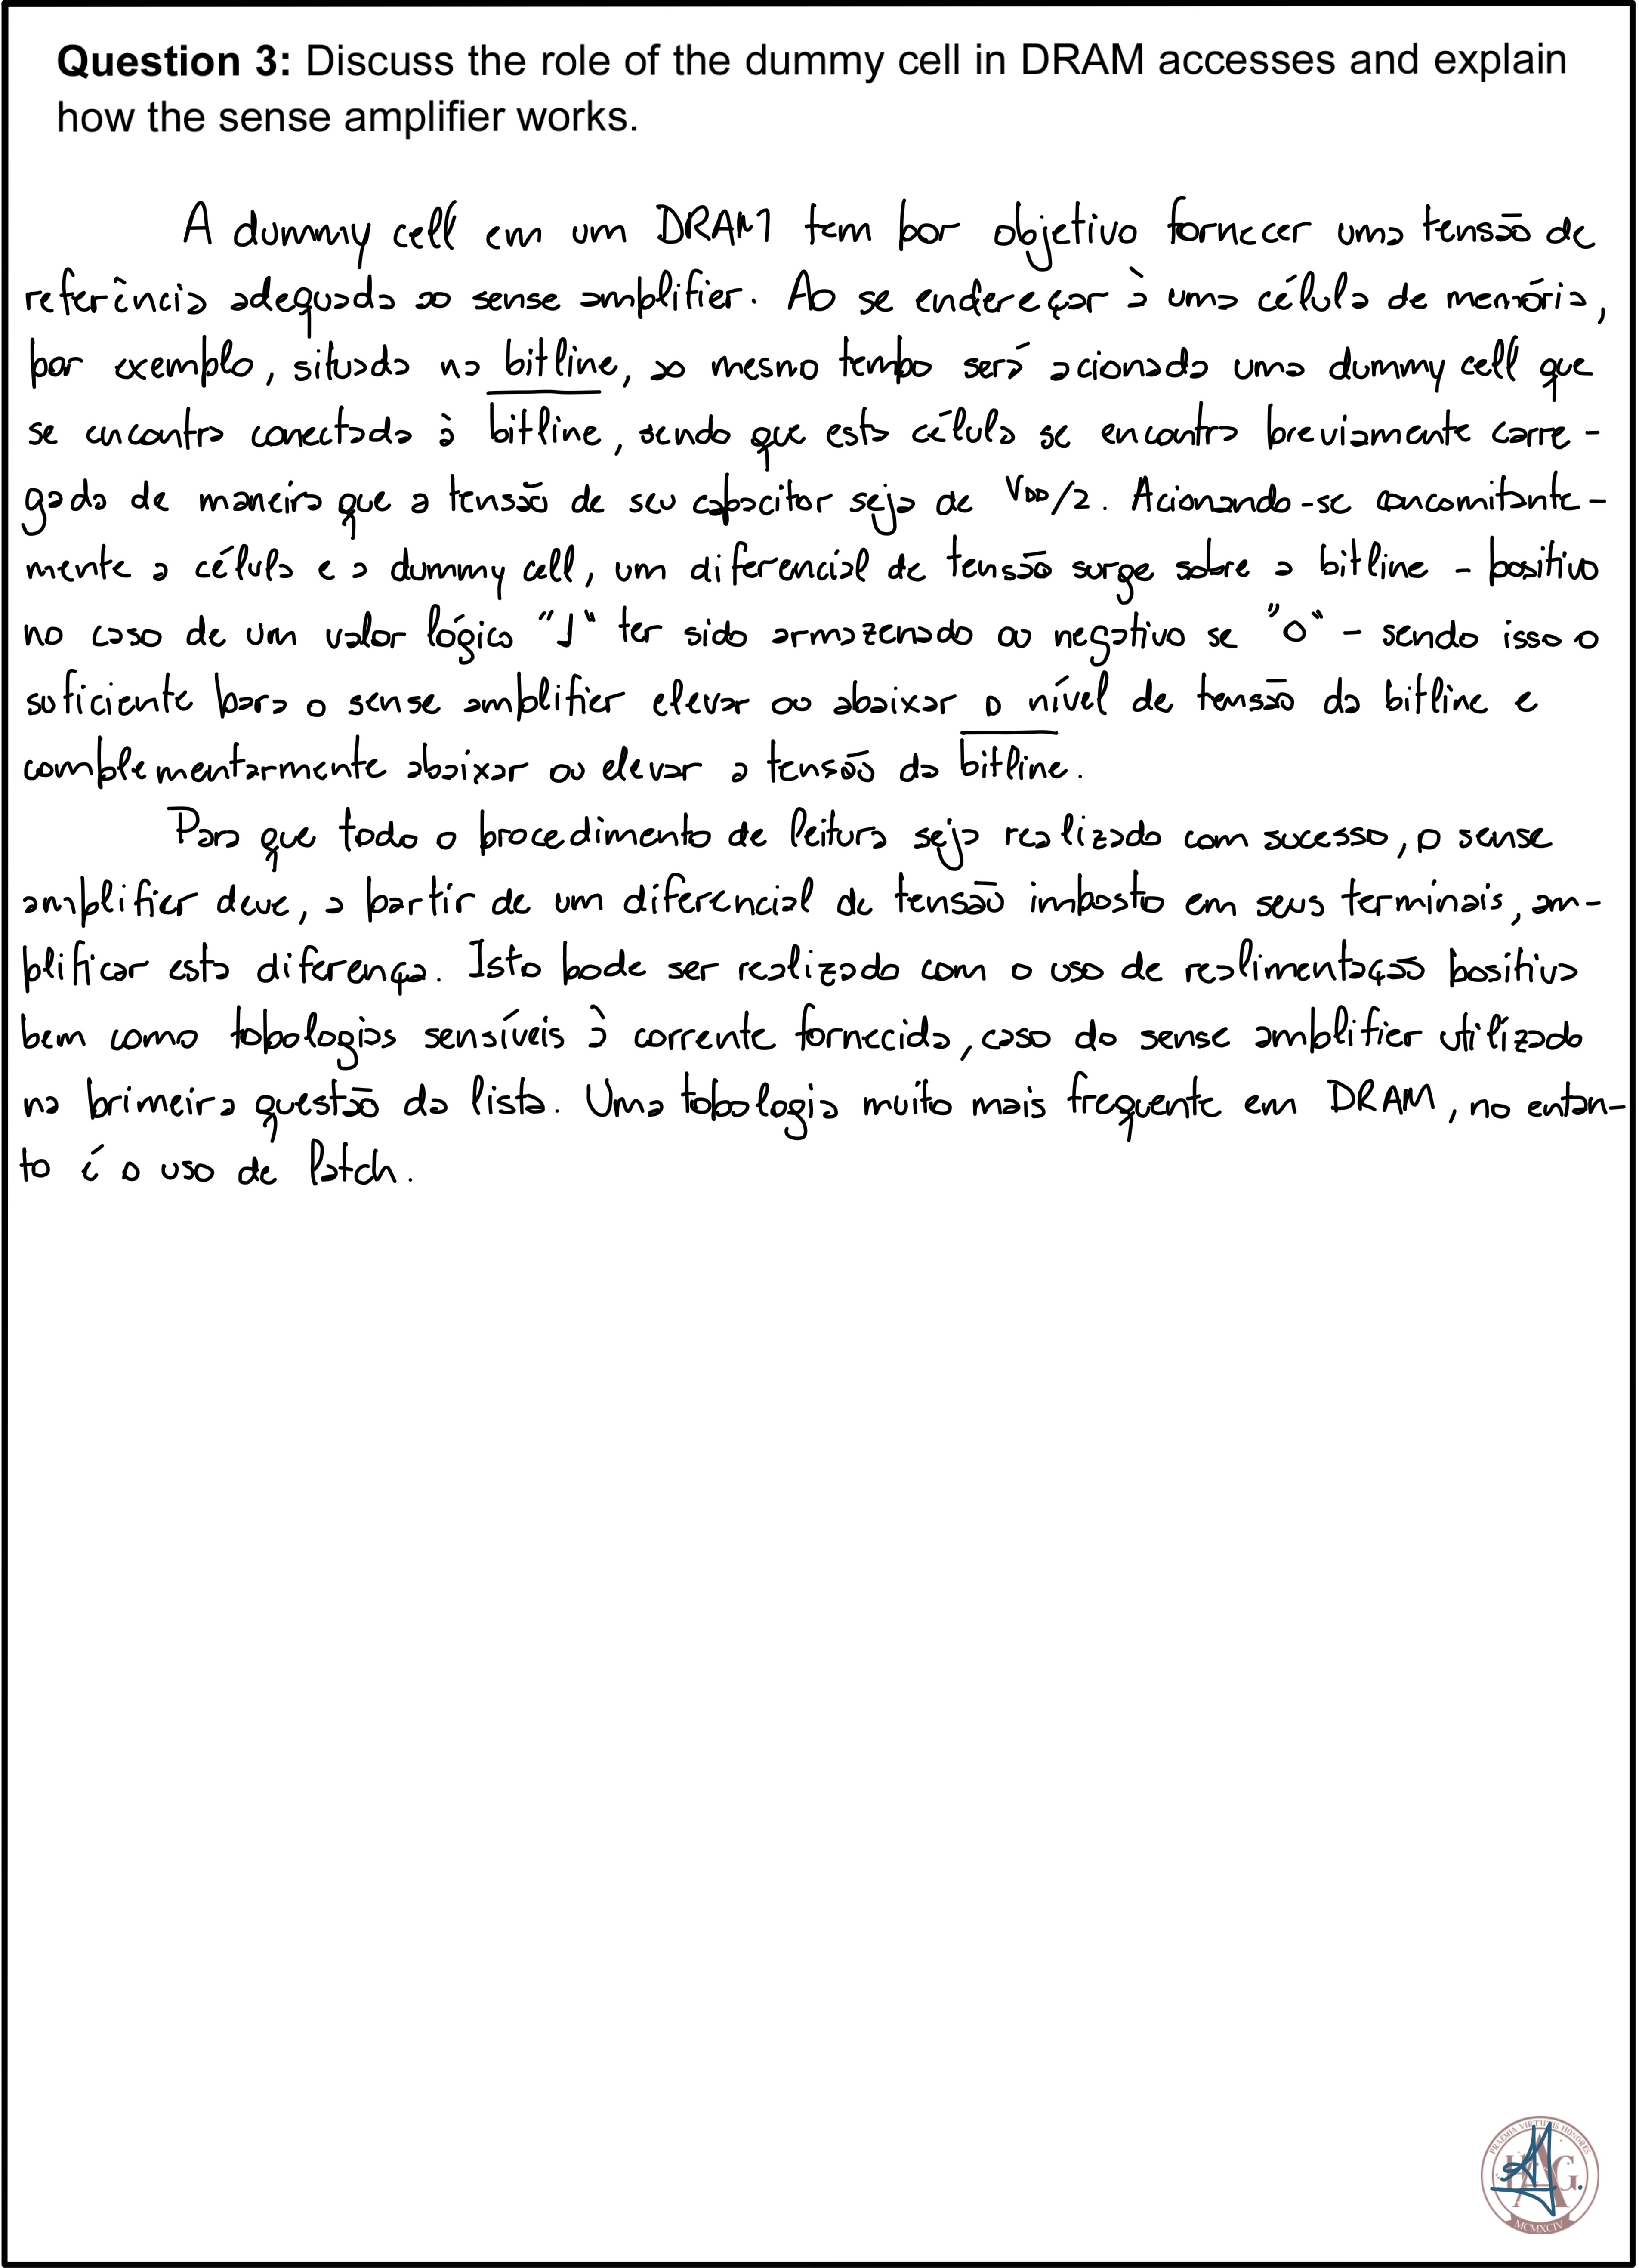 Question 3: Discuss the role of the dummy cell in DRAM accesses and explain
how the sense amplifier works.
A dummy cell em um DRAM tem por objetivo fornecer uma tensão de
referência adequada ao sense amplifier. Ao se endereçar à uma célula de memória,
por exemplo, situada na bitline, ao mesmo tempo será acionada uma dummy cell que
se encontra conectada à b̅i̅t̅l̅i̅n̅e̅, sendo que esta célula se encontra previamente carre-
gada de maneira que a tensão de seu capacitor seja de VDD/2. Acionando-se concomitante-
mente a célula e a dummy cell, um diferencial de tensão surge sobre a bitline - positivo
no caso de um valor lógico "1" ter sido armazenado ou negativo se "0" - sendo isso o
suficiente para o sense amplifier elevar ou abaixar o nível de tensão da bitline e
complementarmente abaixar ou elevar a tensão da b̅i̅t̅l̅i̅n̅e̅.
Para que todo o procedimento de leitura seja realizado com sucesso, o sense
amplifier deve, a partir de um diferencial de tensão imposto em seus terminais, am-
plificar esta diferença. Isto pode ser realizado com o uso de realimentação positiva
bem como topologias sensíveis à corrente fornecida, caso do sense amplifier utilizado
na primeira questão da lista. Uma topologia muito mais frequente em DRAM, no entan-
to é o uso de latch.
PRAEMIA VIRTUTIS HONORES
MCMXCIV